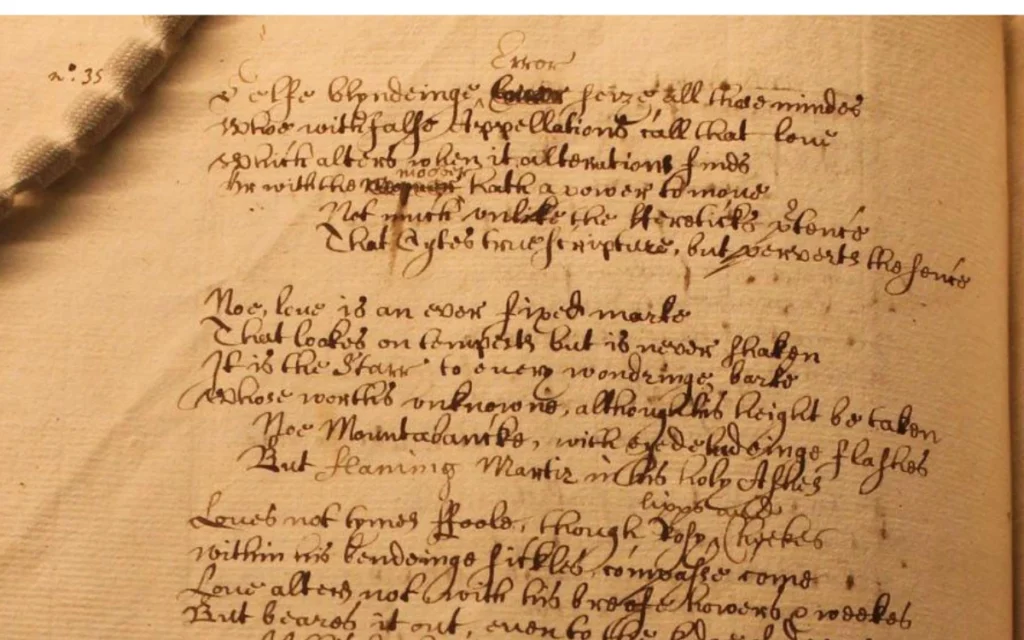 Error
n°. 35
Selfe blyndeinge seize all those mindes
Who with false Appellations call that love
Which alters when it alterations finds
moover
Or with the hath a power to move
Not much unlike the Hereticks ptence
That Cytes true scripture, but perverts the sence
Noe, love is an ever fixed marke
That lookes on tempests but is never shaken
It is the Starr to every wondringe barke
Whose worth's unknowne, although his height be taken
Noe Mountabancke, with eyedeludeinge flashes
But flaming Martir in his holy Ashes
lipps and
Loves not tymes Foole, though Rosy Cheekes
within his bendeinge sickles compasse come
Love alters not with his breife howers & weekes
But beares it out, even to the